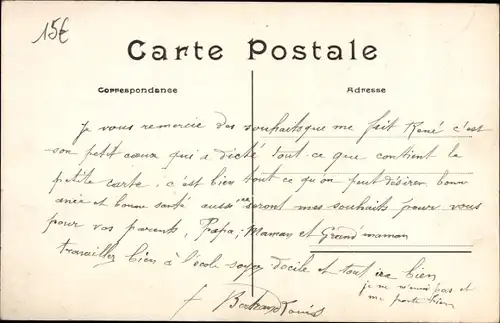 15€
Carte Postale
Correspondance
Adresse
Je vous remercie des souhaits que me fait René c'est
son petit cœur qui a dicté tout ce que contient la
petite carte, c'est bien tout ce qu'on peut désirer, bonne
année et bonne santé aussi seront mes souhaits pour vous
pour vos parents, Papa, Maman et Grand'maman
travaillez bien à l'école soyez docile et tout ira bien
je ne m'ennui pas et
me porte bien
Bertrand Louis